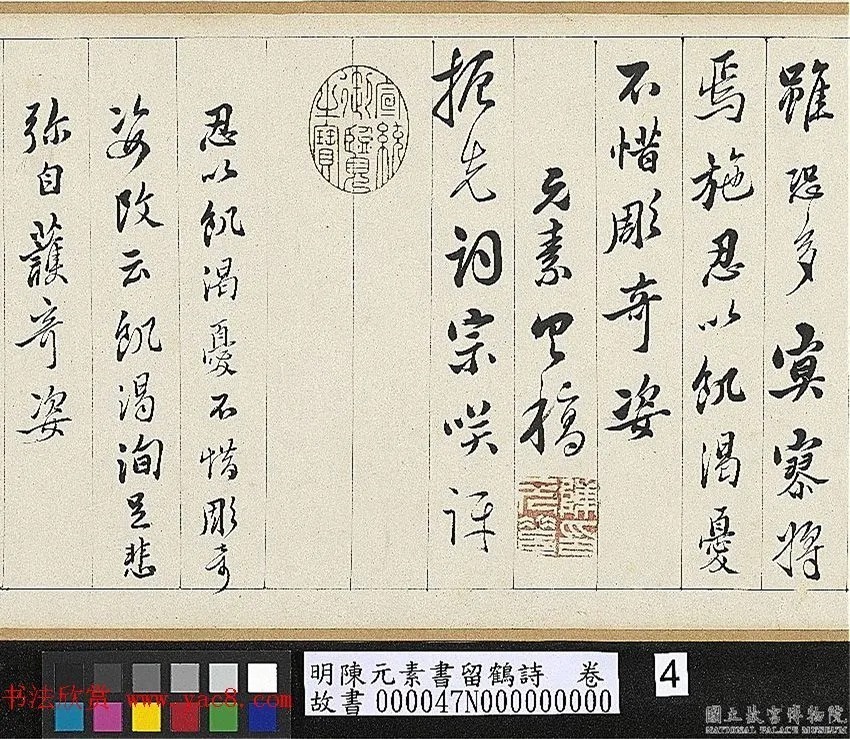 雖恐多寞寥將
焉施忍以飢渴憂
不惜彫奇姿
元素具稿
振先詞宗咲評
宣統御覽之寶
忍以飢渴憂不惜彫奇
姿改云飢渴洵足悲
弥自護奇姿
明陳元素書留鶴詩 卷
故書 000047N000000000
4
书法欣赏 www.yac8.com
國立故宮博物院
NATIONAL PALACE MUSEUM